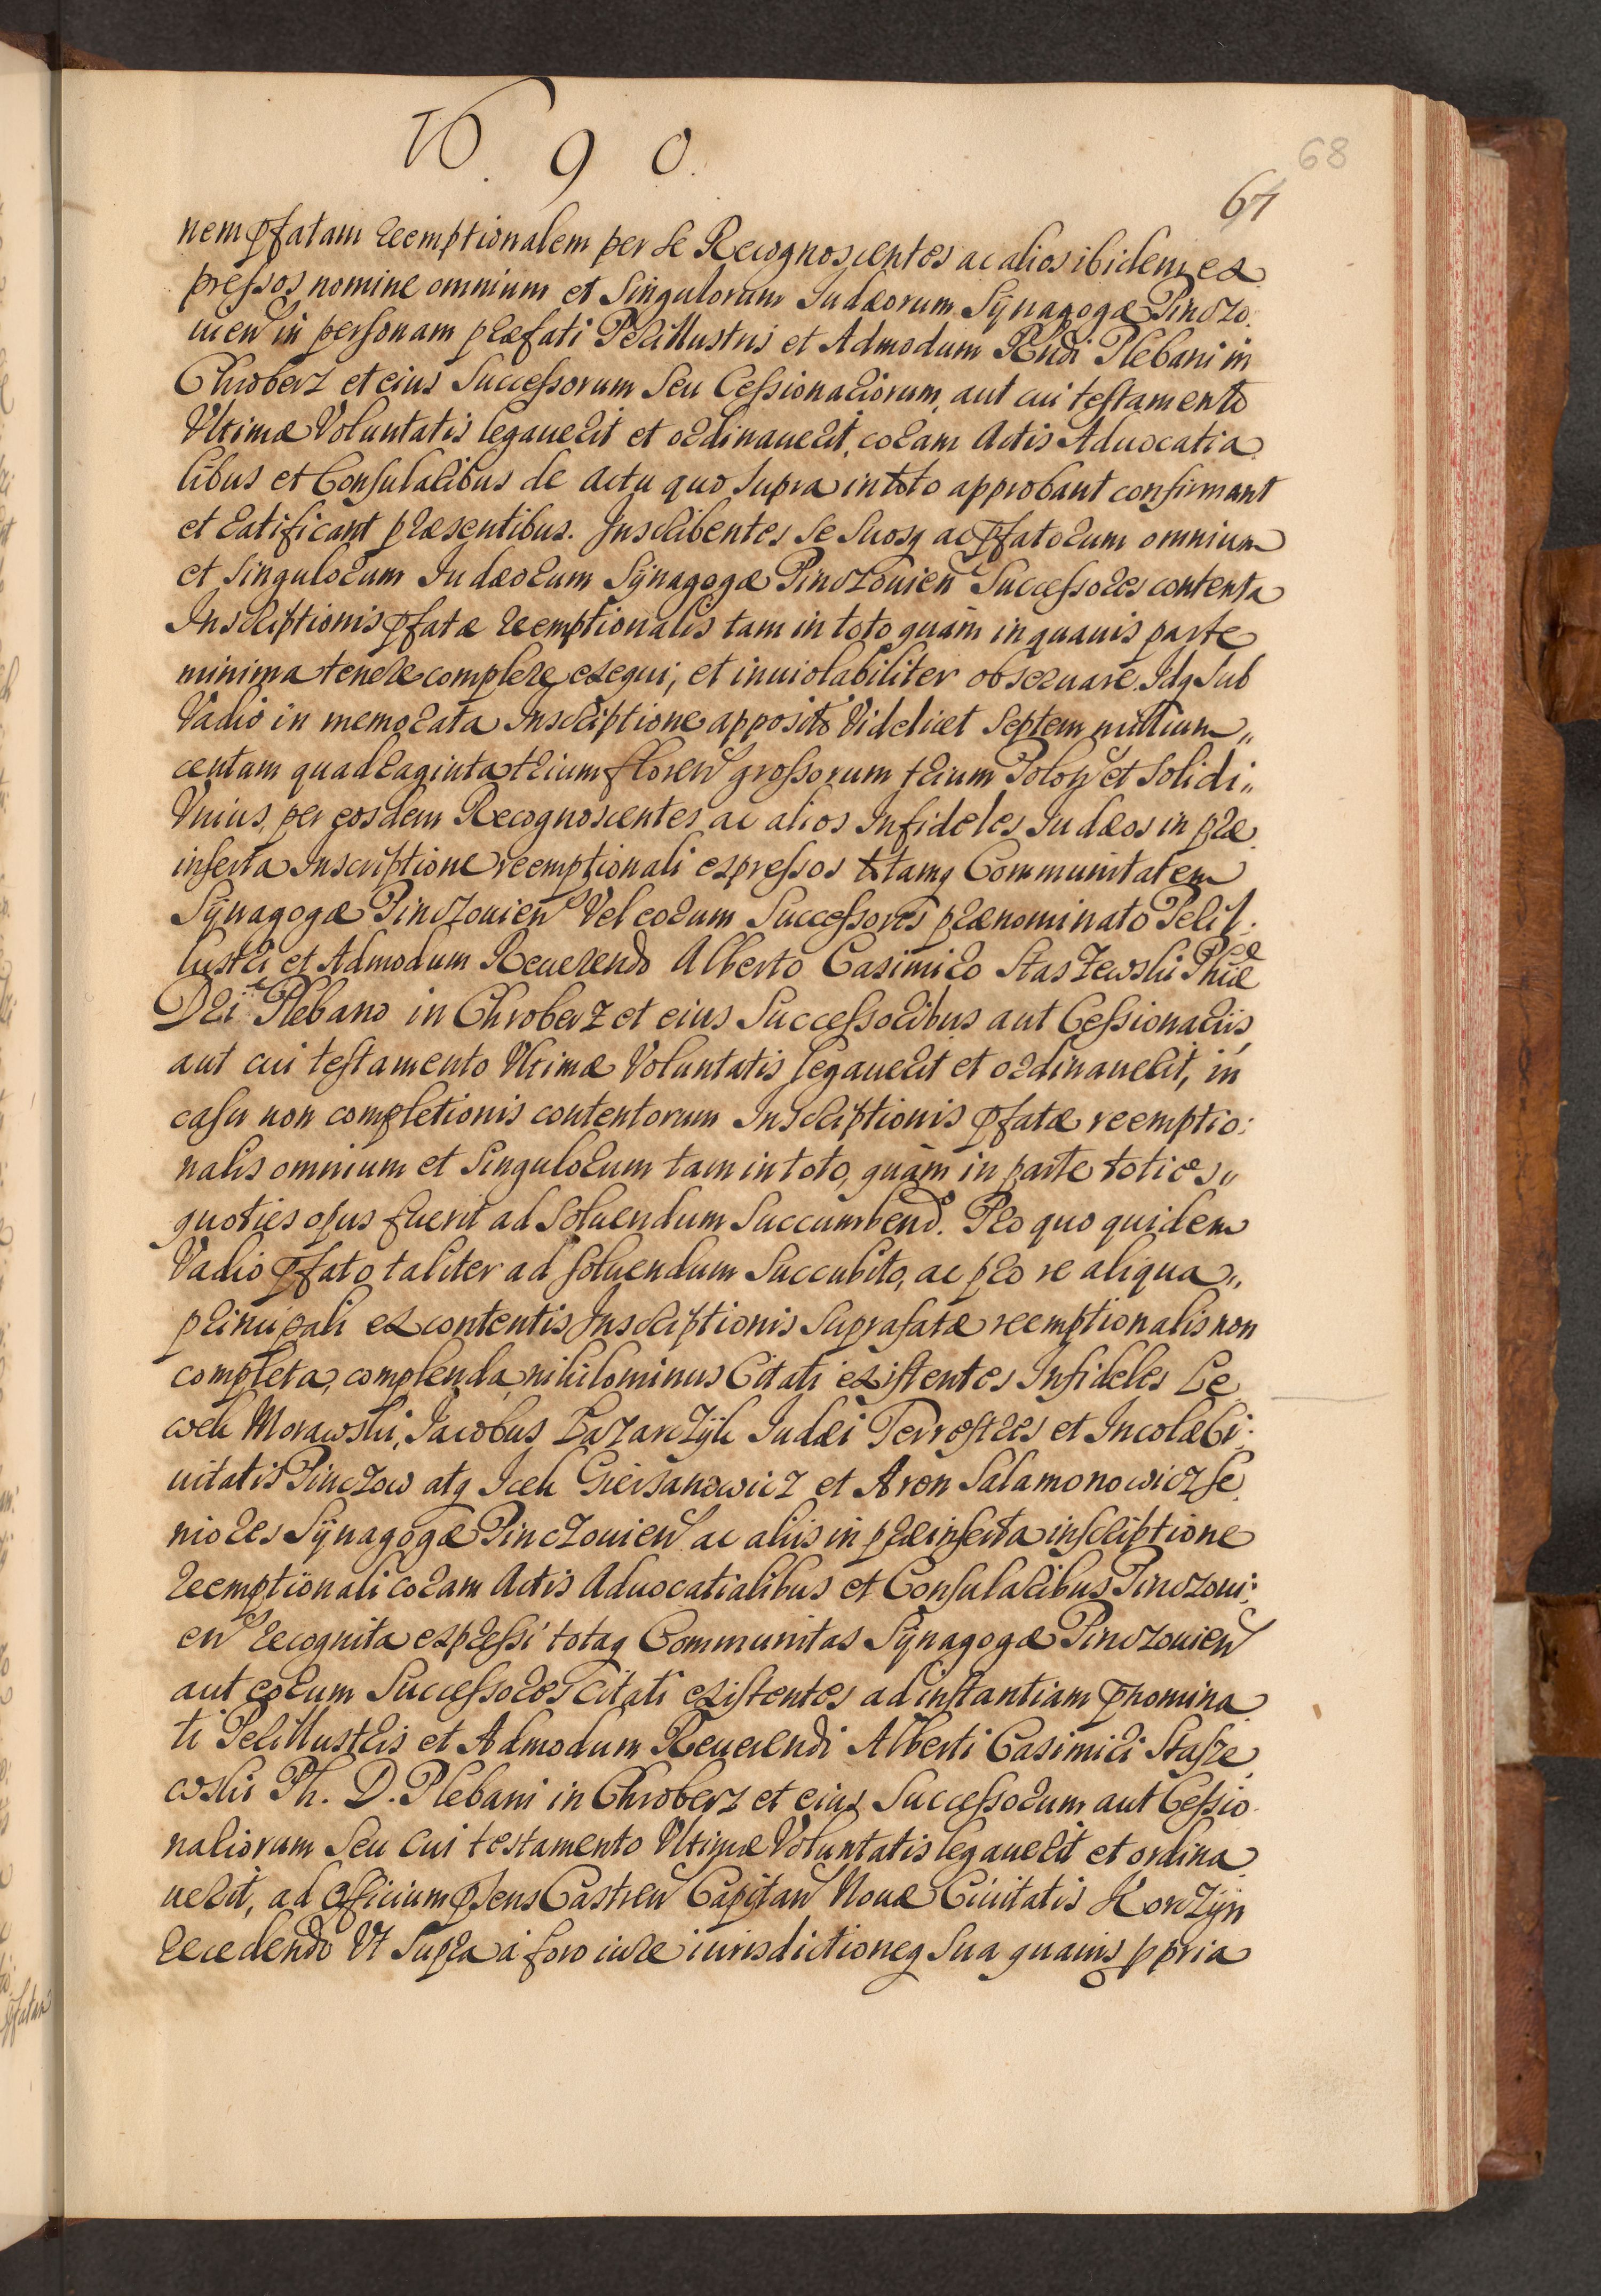 1690.
68
67
nem pfatam reemptionalem per se Recognoscentes ac alios ibidem ex
pressos nomine omnium et Singulorum Judæorum Synagogæ Pinczo
uien in personam præfati Perillustris et Admodum Rndi Plebani in
Chroberz et eius Successorum Seu Cessionariorum, aut cui testamento
Vltimæ Voluntatis legauerit et ordinauerit, coram Actis Aduocatia
libus et Consularibus de actu quo supra in toto approbant confirmant
et ratificant præsentibus. Inscribentes se Suosq ac pfatorum omnium
et Singulorum Judæorum Synagogæ Pinczouien Successores contenta
Inscriptionis pfatæ reemptionalis tam in toto quàm in quauis parte
minima tenere complere exequi, et inuiolabiliter obseruare. Idq Sub
Vadio in memorata Inscriptione apposito Videlicet Septem millium„
centum quadraginta trium floren grossorum trium Polon et Solidi„
Vnius, per eosdem Recognoscentes ac alios Infideles Judæos in præ
inserta Inscriptione reemptionali expressos totamq Communitatem
Synagogæ Pinczouien Vel eorum Successores prænominato Peril:
lustri et Admodum Reuerendo Alberto Casimiro Staszewski Phiæ
Dri Plebano in Chroberz et eius Successoribus aut Cessionariis,
aut cui testamento Vltimæ Voluntatis legauerit et ordinauerit, in
casu non completionis contentorum Inscriptionis pfatæ reemptio:
nalis omnium et Singulorum tam in toto, quàm in parte toties„
quoties opus fuerit ad Soluendum Succumbend. Pro quo quidem
Vadio pfato taliter ad soluendum Succubito, ac pro re aliqua„
principali ex contentis Inscriptionis Suprafatæ reemptionalis non
completa, complenda, nihilominus Citati existentes Infideles Le
wek Morawski, Jacobus Bazarczyk Judæi Terrestres et Incolæ Ci:
uitatis Pinczow atq Icek Giersanowicz et Aron Salamonowicz Se
niores Synagogæ Pinczouien ac aliis in præinserta inscriptione
reemptionali coram Actis Aduocatialibus et Consularibus Pinczoui:
en recognita expressi totaq Communitas Synagogæ Pinczouien
aut eorum Successores Citati existentes ad instantiam pnomina
ti Perillustris et Admodum Reuerendi Alberti Casimiri Stasze
wski Ph. D. Plebani in Chroberz et eius Successorum aut Cessio
nariorum Seu Cui testamento Vltimæ Voluntatis legauerit et ordina
uerit, ad Officium psens Castren Capitan Nouæ Ciuitatis Korczyn
recedendo Vt Supra à foro iure iurisdictioneq Sua quauis ppria